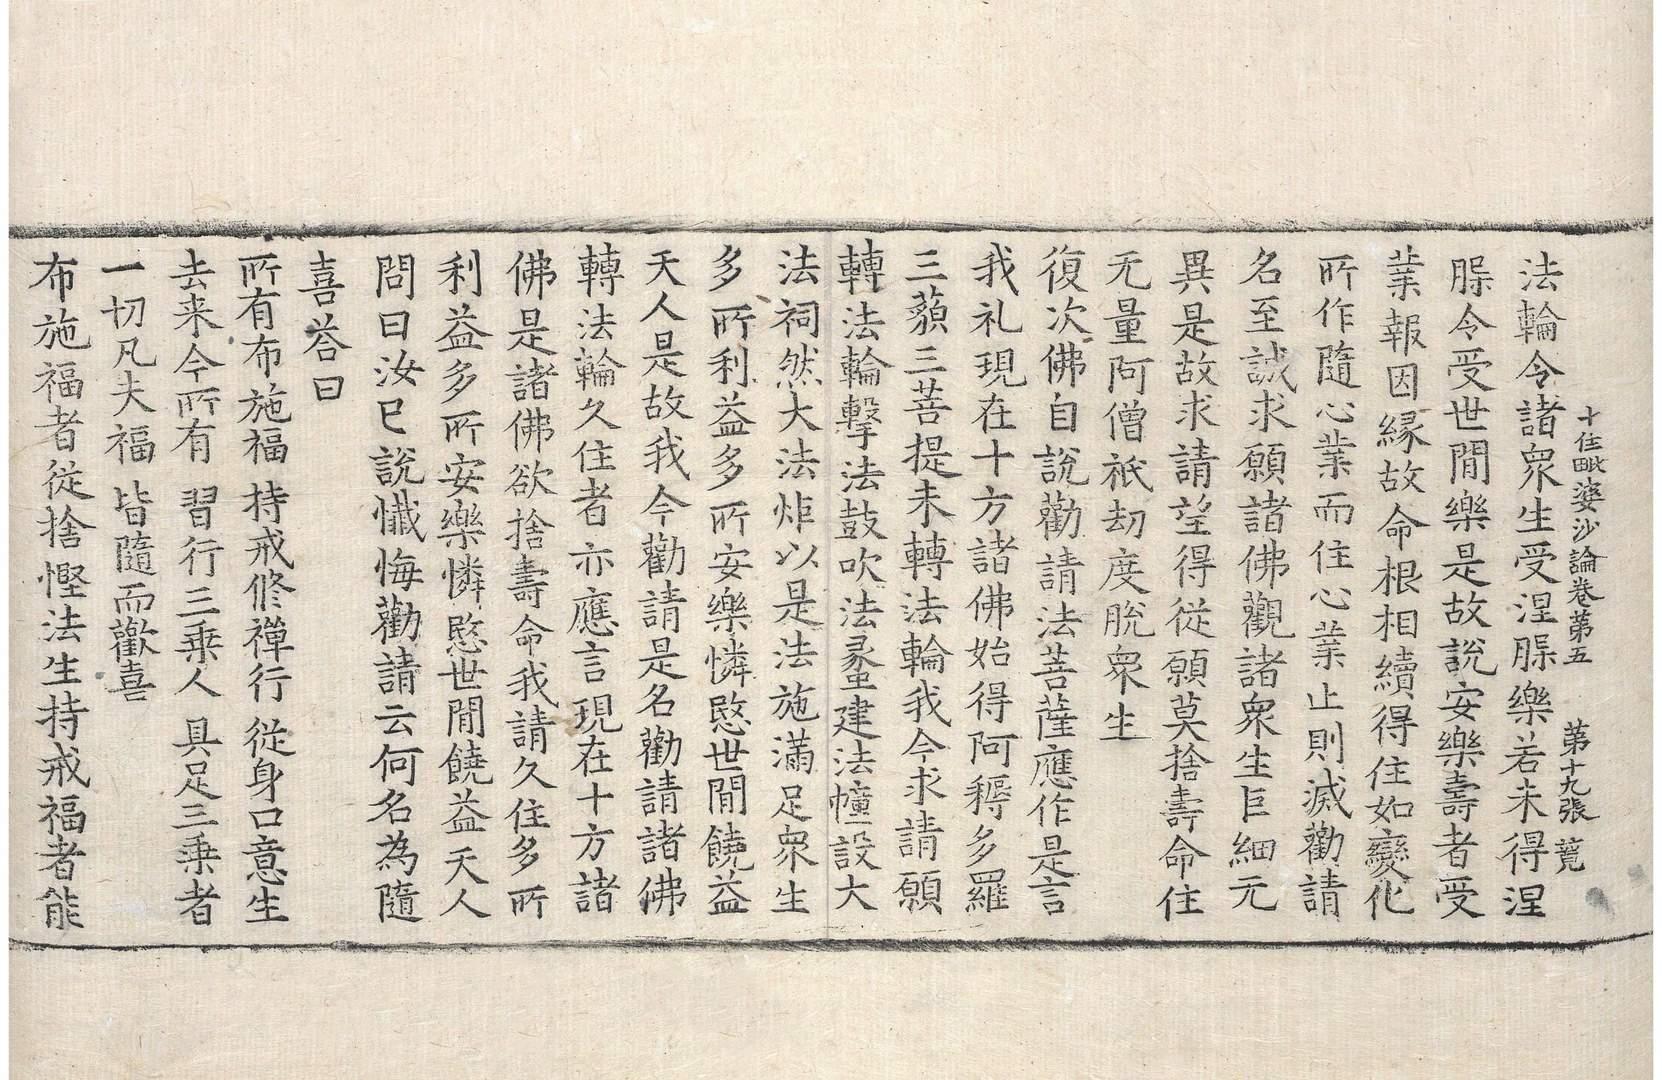 十住毗婆沙論卷第五　第十九張　覧
法輪令諸衆生受涅槃樂若未得涅
槃令受世閒樂是故說安樂壽者受
業報因緣故命根相續得住如變化
所作隨心業而住心業止則滅勸請
名至誠求願諸佛觀諸衆生巨細无
異是故求請望得從願莫捨壽命住
无量阿僧祇劫度脫衆生
復次佛自說勸請法菩薩應作是言
我礼現在十方諸佛始得阿耨多羅
三藐三菩提未轉法輪我今求請願
轉法輪擊法鼓吹法䗍建法幢設大
法祠然大法炬以是法施滿足衆生
多所利益多所安樂憐愍世閒饒益
天人是故我今勸請是名勸請諸佛
轉法輪久住者亦應言現在十方諸
佛是諸佛欲捨壽命我請久住多所
利益多所安樂憐愍世閒饒益天人
問曰汝已說懺悔勸請云何名為隨
喜荅曰
所有布施福　持戒修禪行　從身口意生
去来今所有　習行三乗人　具足三乗者
一切凡夫福　皆隨而歡喜
布施福者從捨慳法生持戒福者能